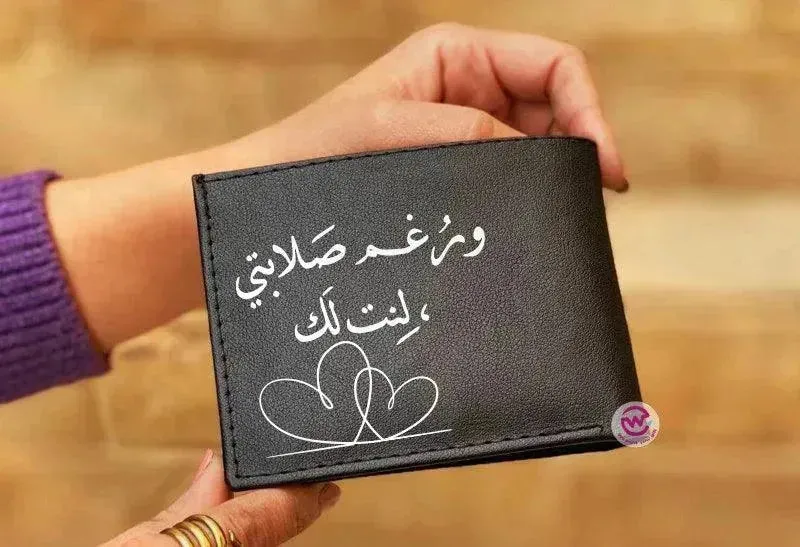 ورُغـم صَلابتي
، لِنت لَك